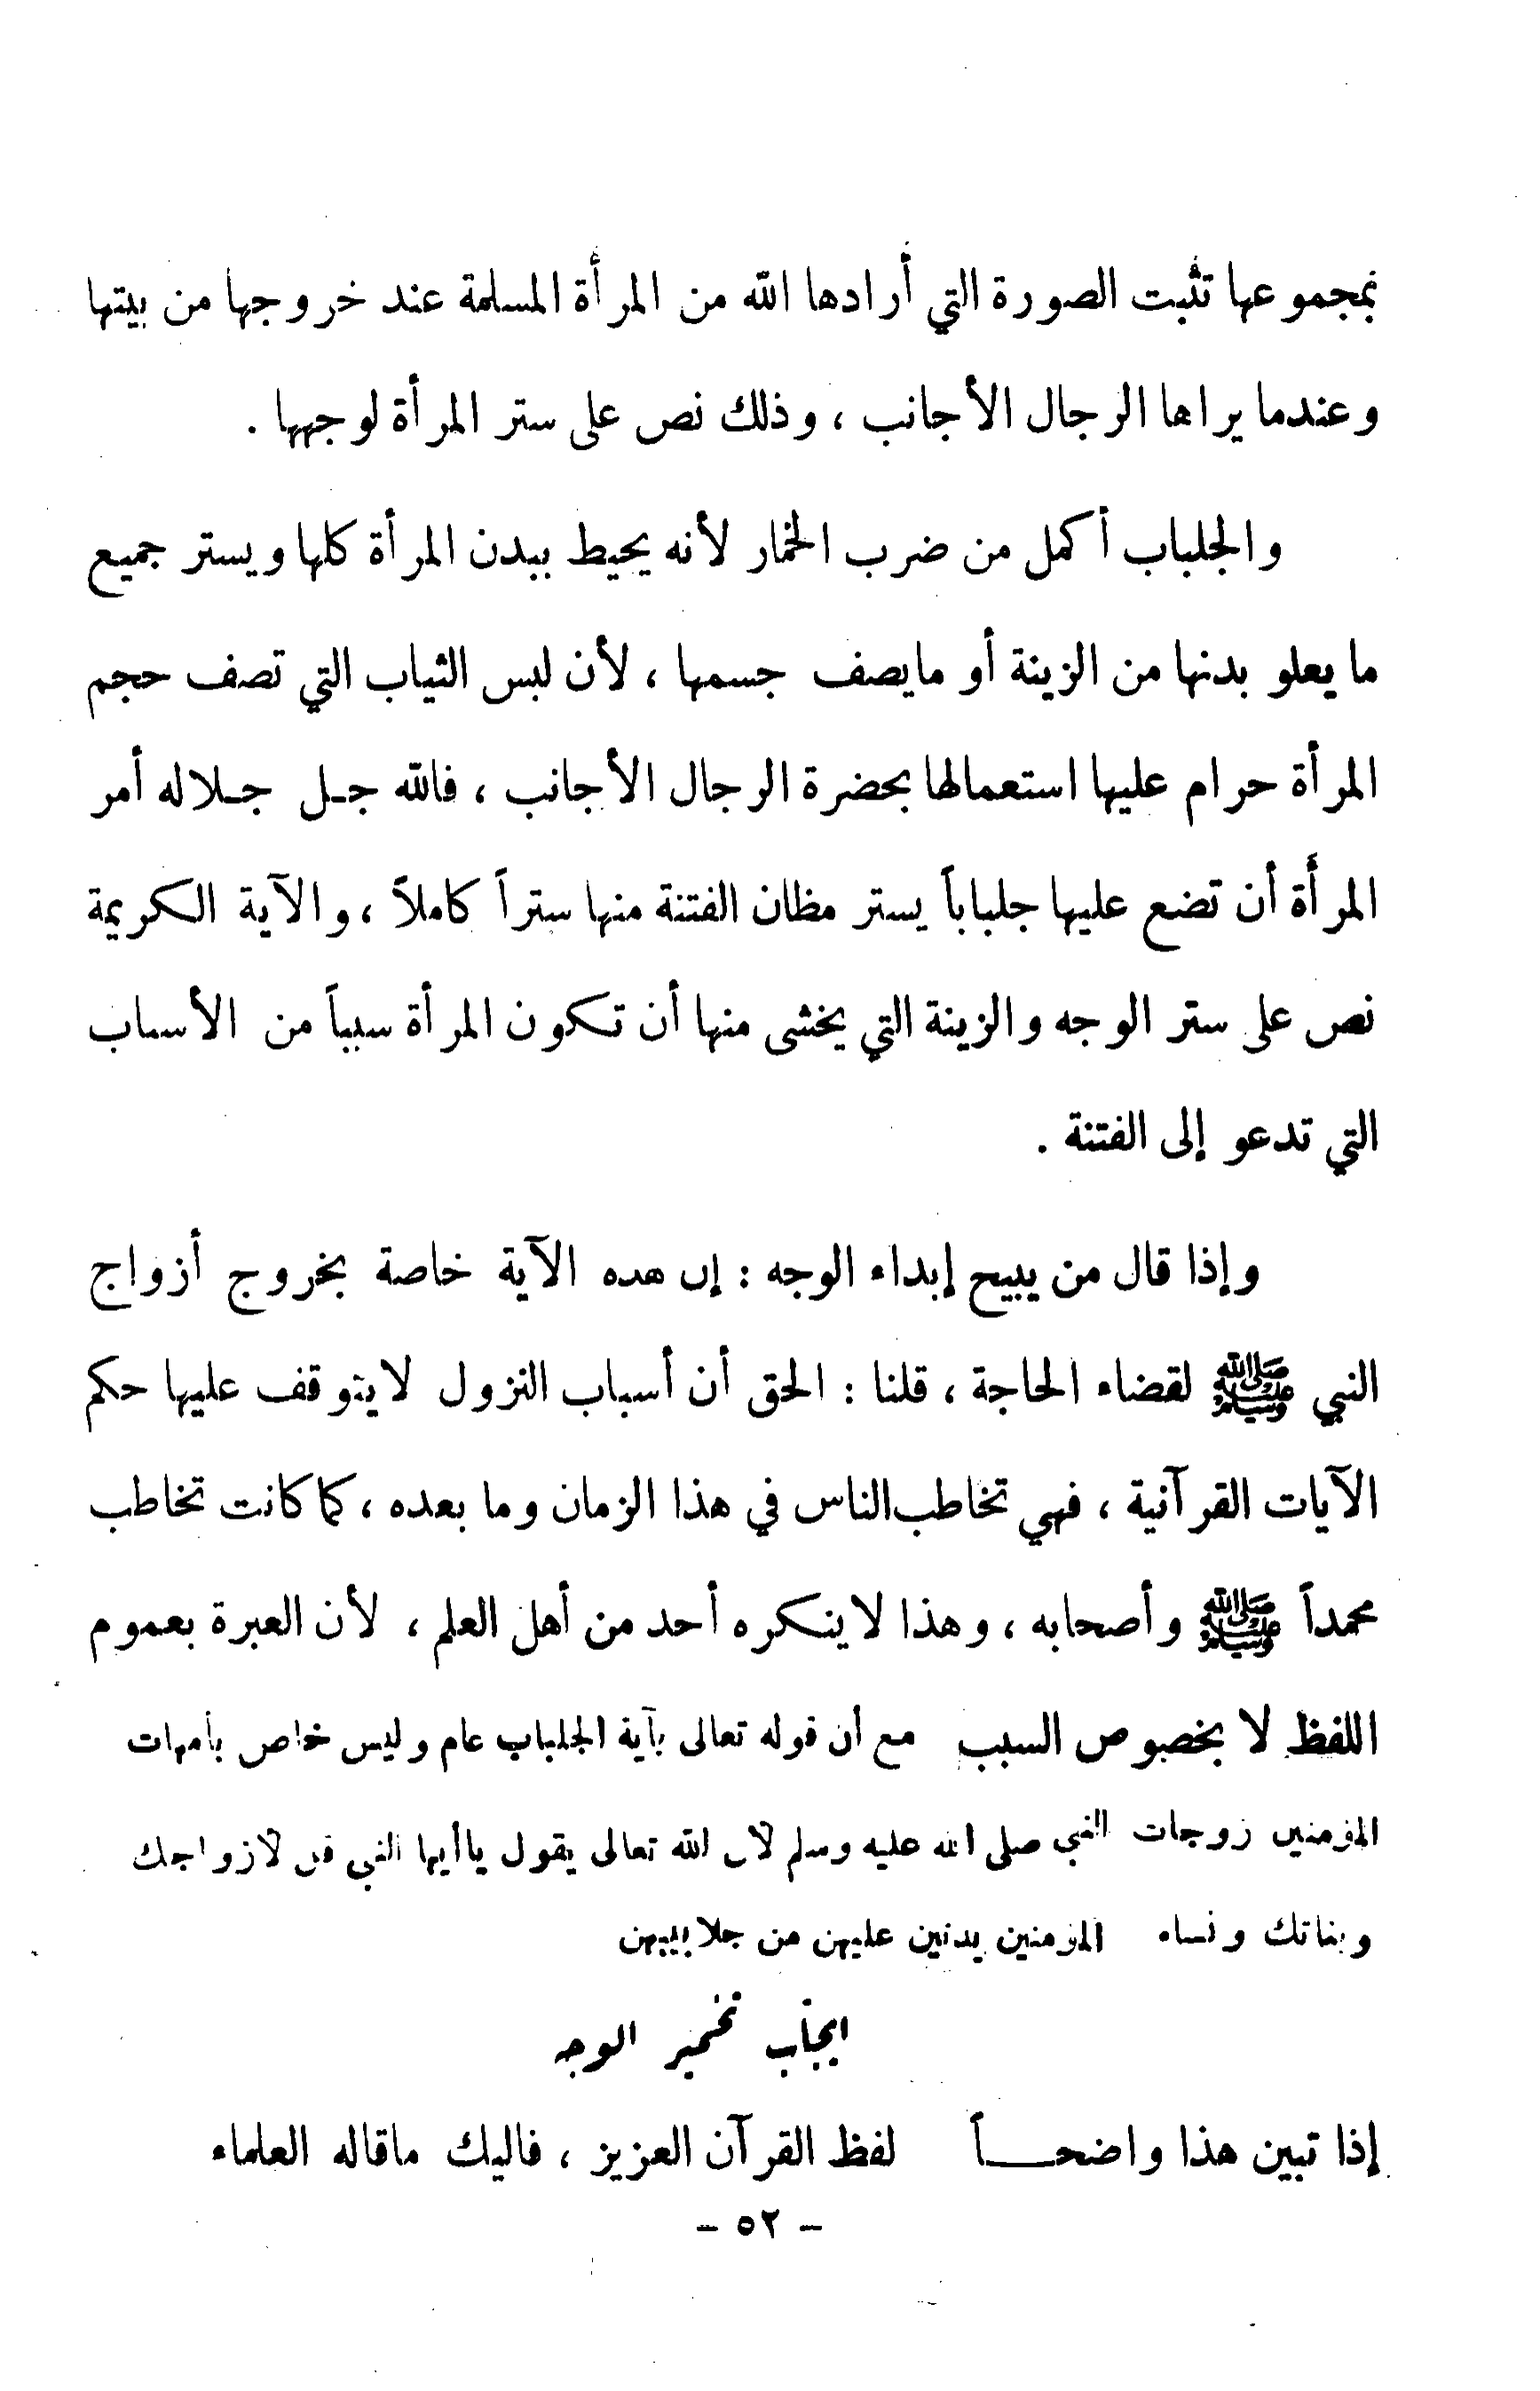 بمجموعها تثبت الصورة التي أرادها الله من المرأة المسلمة عند خروجها من بيتها
وعندما يراها الرجال الأجانب ، وذلك نص على ستر المرأة لوجهها .
والجلباب أكمل من ضرب الخمار لأنه يحيط ببدن المرأة كلها ويستر جميع
ما يعلو بدنها من الزينة أو مايصف جسمها ، لأن لبس الثياب التي تصف حجم
المرأة حرام عليها استعمالها بحضرة الرجال الأجانب ، فالله جـل جـلاله أمر
المرأة أن تضع عليها جلباباً يستر مظان الفتنة منها ستراً كاملاً ، والآية الكريمة
نص على ستر الوجه والزينة التي يخشى منها أن تكون المرأة سبباً من الأسباب
التي تدعو إلى الفتنة .
وإذا قال من يبيح إبداء الوجه : إن هده الآية خاصة بخروج أزواج
النبي ﷺ لقضاء الحاجة ، قلنا : الحق أن أسباب النزول لا يتوقف عليها حكم
الآيات القرآنية ، فهي تخاطب الناس في هذا الزمان وما بعده ، كما كانت تخاطب
محمداً ﷺ وأصحابه ، وهذا لا ينكره أحد من أهل العلم ، لأن العبرة بعموم
اللفظ لا بخصوص السبب مع أن قوله تعالى بآية الجلباب عام وليس خاص بأمهات
المؤمنين زوجات النبي صلى الله عليه وسلم لان الله تعالى يقول ياأيها النبي قل لازواجك
وبناتك ونساء المؤمنين يدنين عليهن من جلابيبهن
ايجاب تخمير الوجه
إذا تبين هذا واضحـــاً لفظ القرآن العزيز ، فاليك ماقاله العلماء
– ٥٢ –